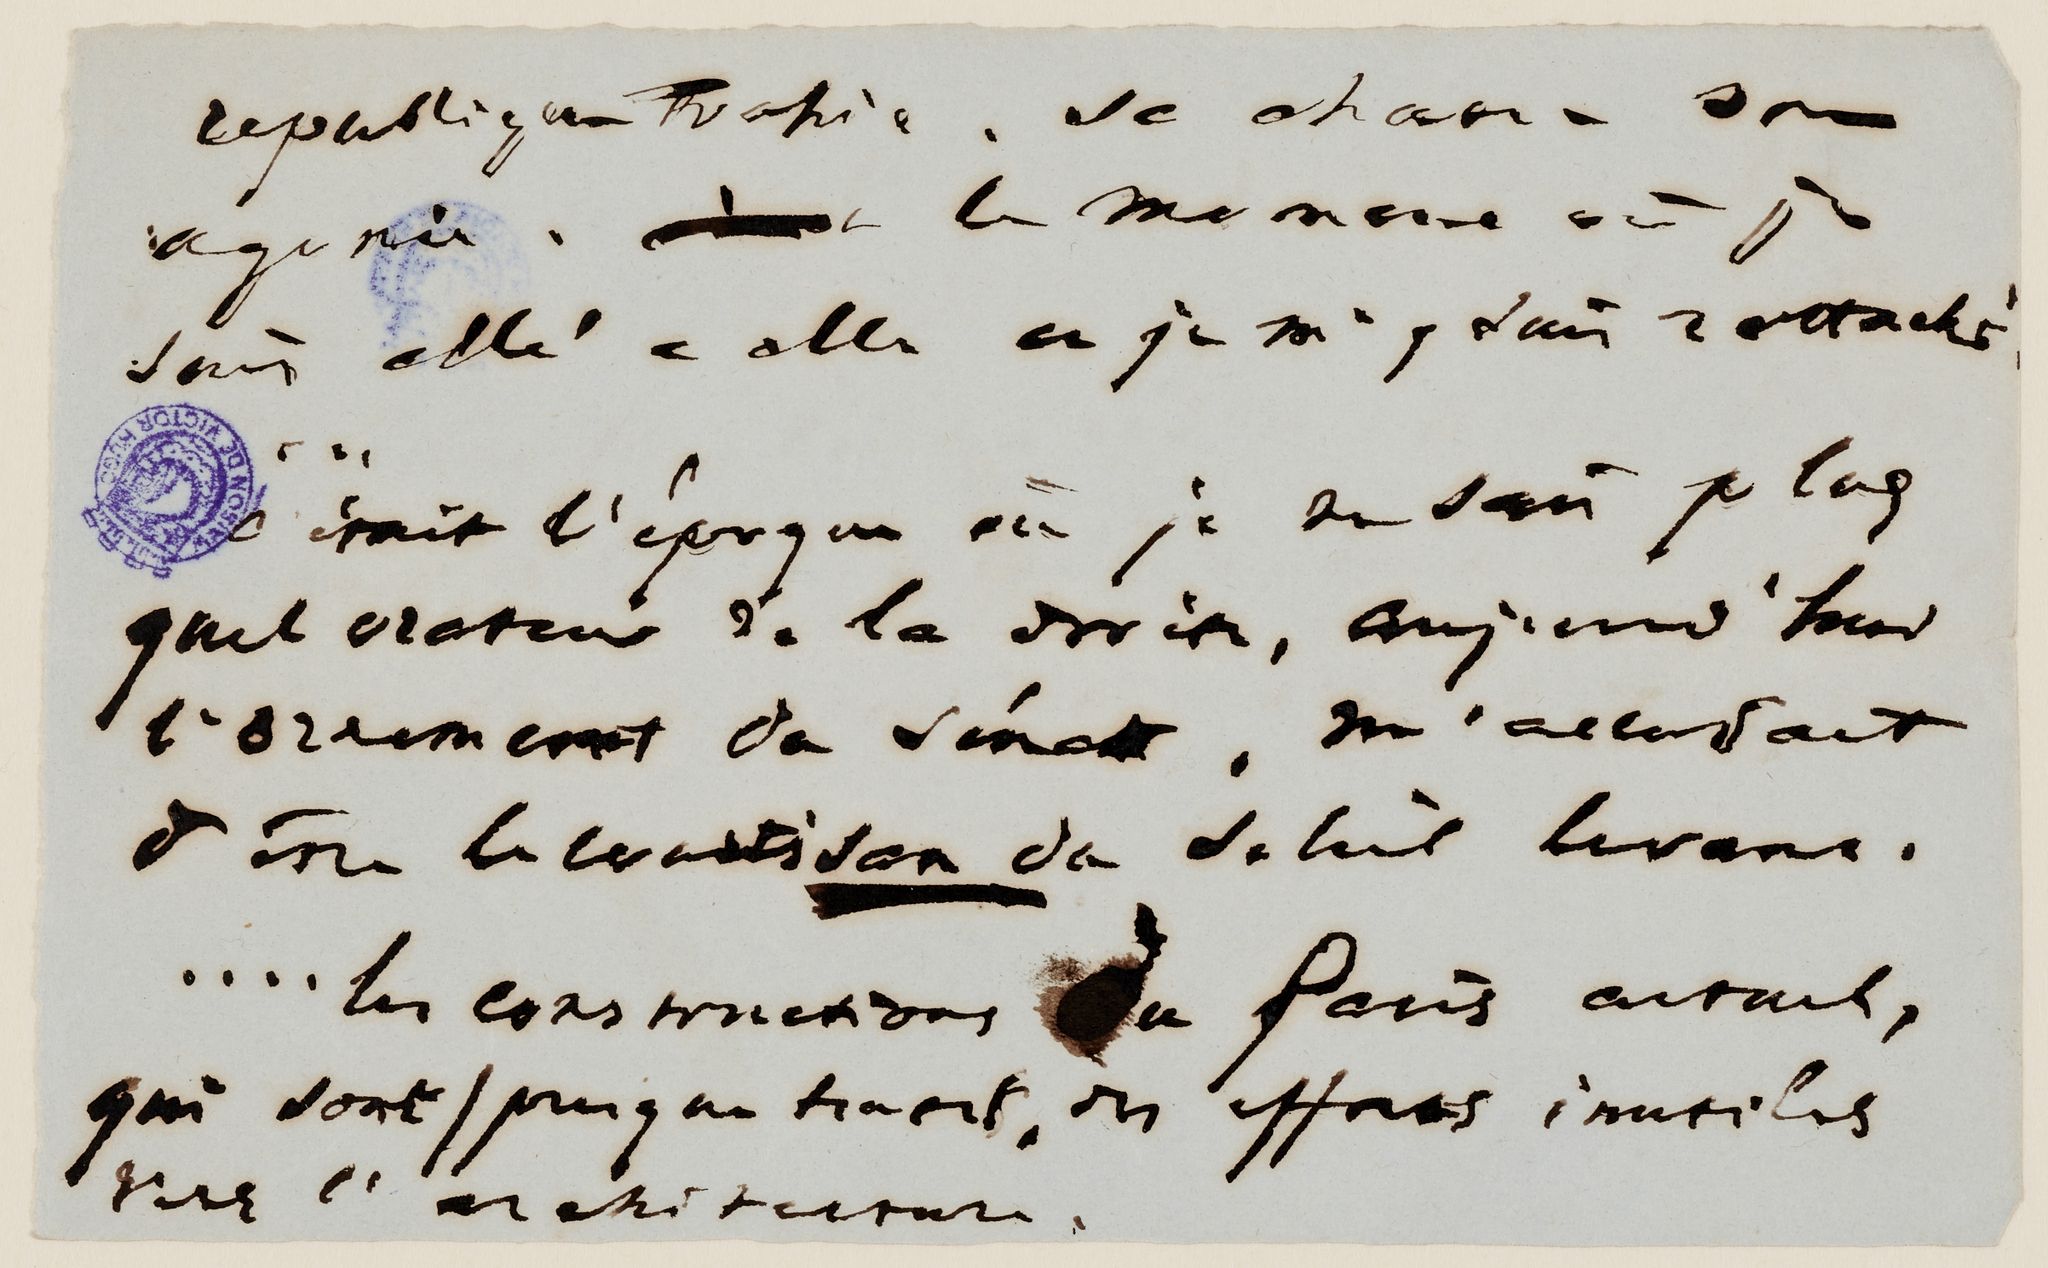 republique trahie. de chaous son
agonie. a le moment où je
suis allé à elle et je m'y suis rattaché.
...
c'était l'époque où je ne sais plus
quel orateur de la droite, aujourd'hui
l'ornement du sénat, m'accusait
d'être le courtisan du soleil levant.
.... les constructions du Paris actuel,
qui sont, presque toutes, des efforts inutiles
vers l'architecture.
MAISON DE VICTOR HUGO